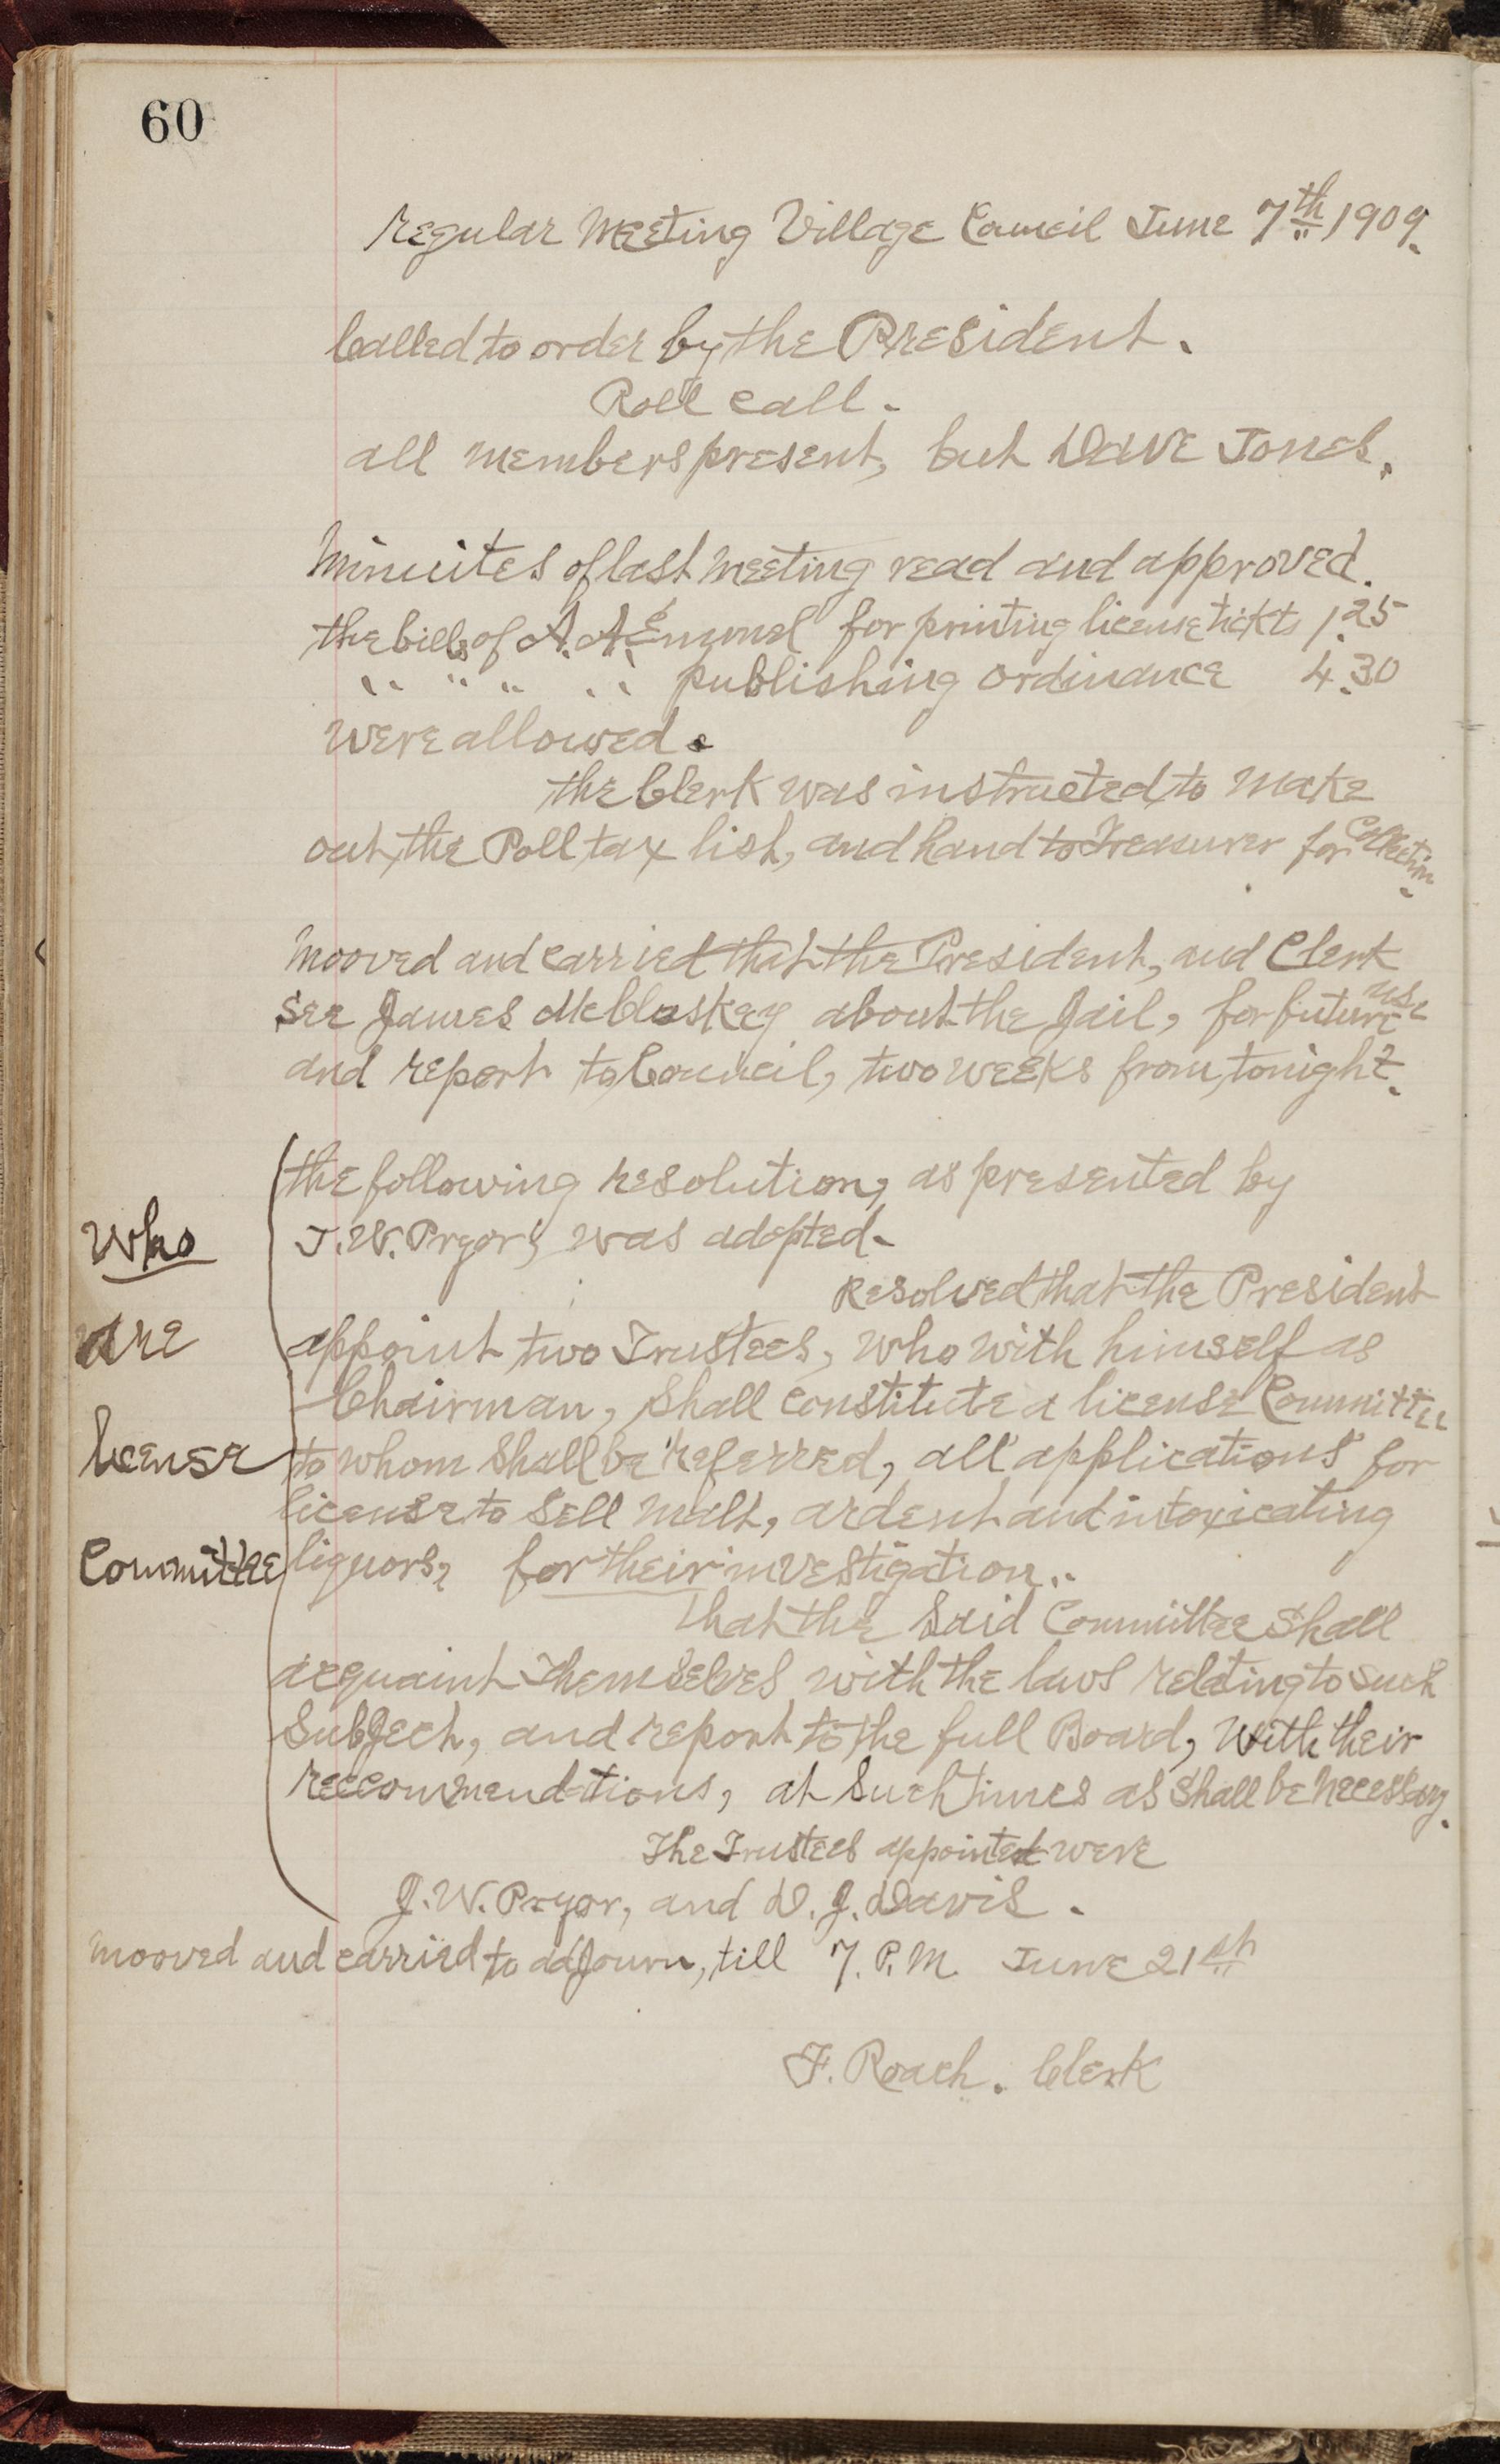 60
Regular Meeting Village Council June 7th 1909.
Called to order by the President.
Roll call.
all members present, but Dave Jones.
Minuites of last Meeting read and approved.
the bills of A. A. for printing license tickts 1.25
" " " " " publishing ordinance 4.30
were allowed.
the Clerk was instructed, to make
out, the Poll tax list, and hand to Treasurer for Collection.
Mooved and carried that the President, and Clerk
See James McCloskey about the Jail, for future use
and report to, Council, two weeks from, tonight.
the following resolution, as presented by
J. W. Pryor, was adopted.
Resolved that the President
Who
are
license
Committee
appoint two Trustees, who with himself as
Chairman, shall constitute a license Committee
to whom shall be referred, all applications for
license to sell malt, ardent and intoxicating
liquors, for their investigation.
that the said Committee shall
acquaint themselves with the laws relating to such
subject, and report to the full Board, with their
reccommendations, at such times as shall be necessary.
The Trustees appointed were
J. W. Pryor, and D. J. Davis.
Mooved and carried to adjourn, till 7. P.M. June 21th
F. Roach. Clerk